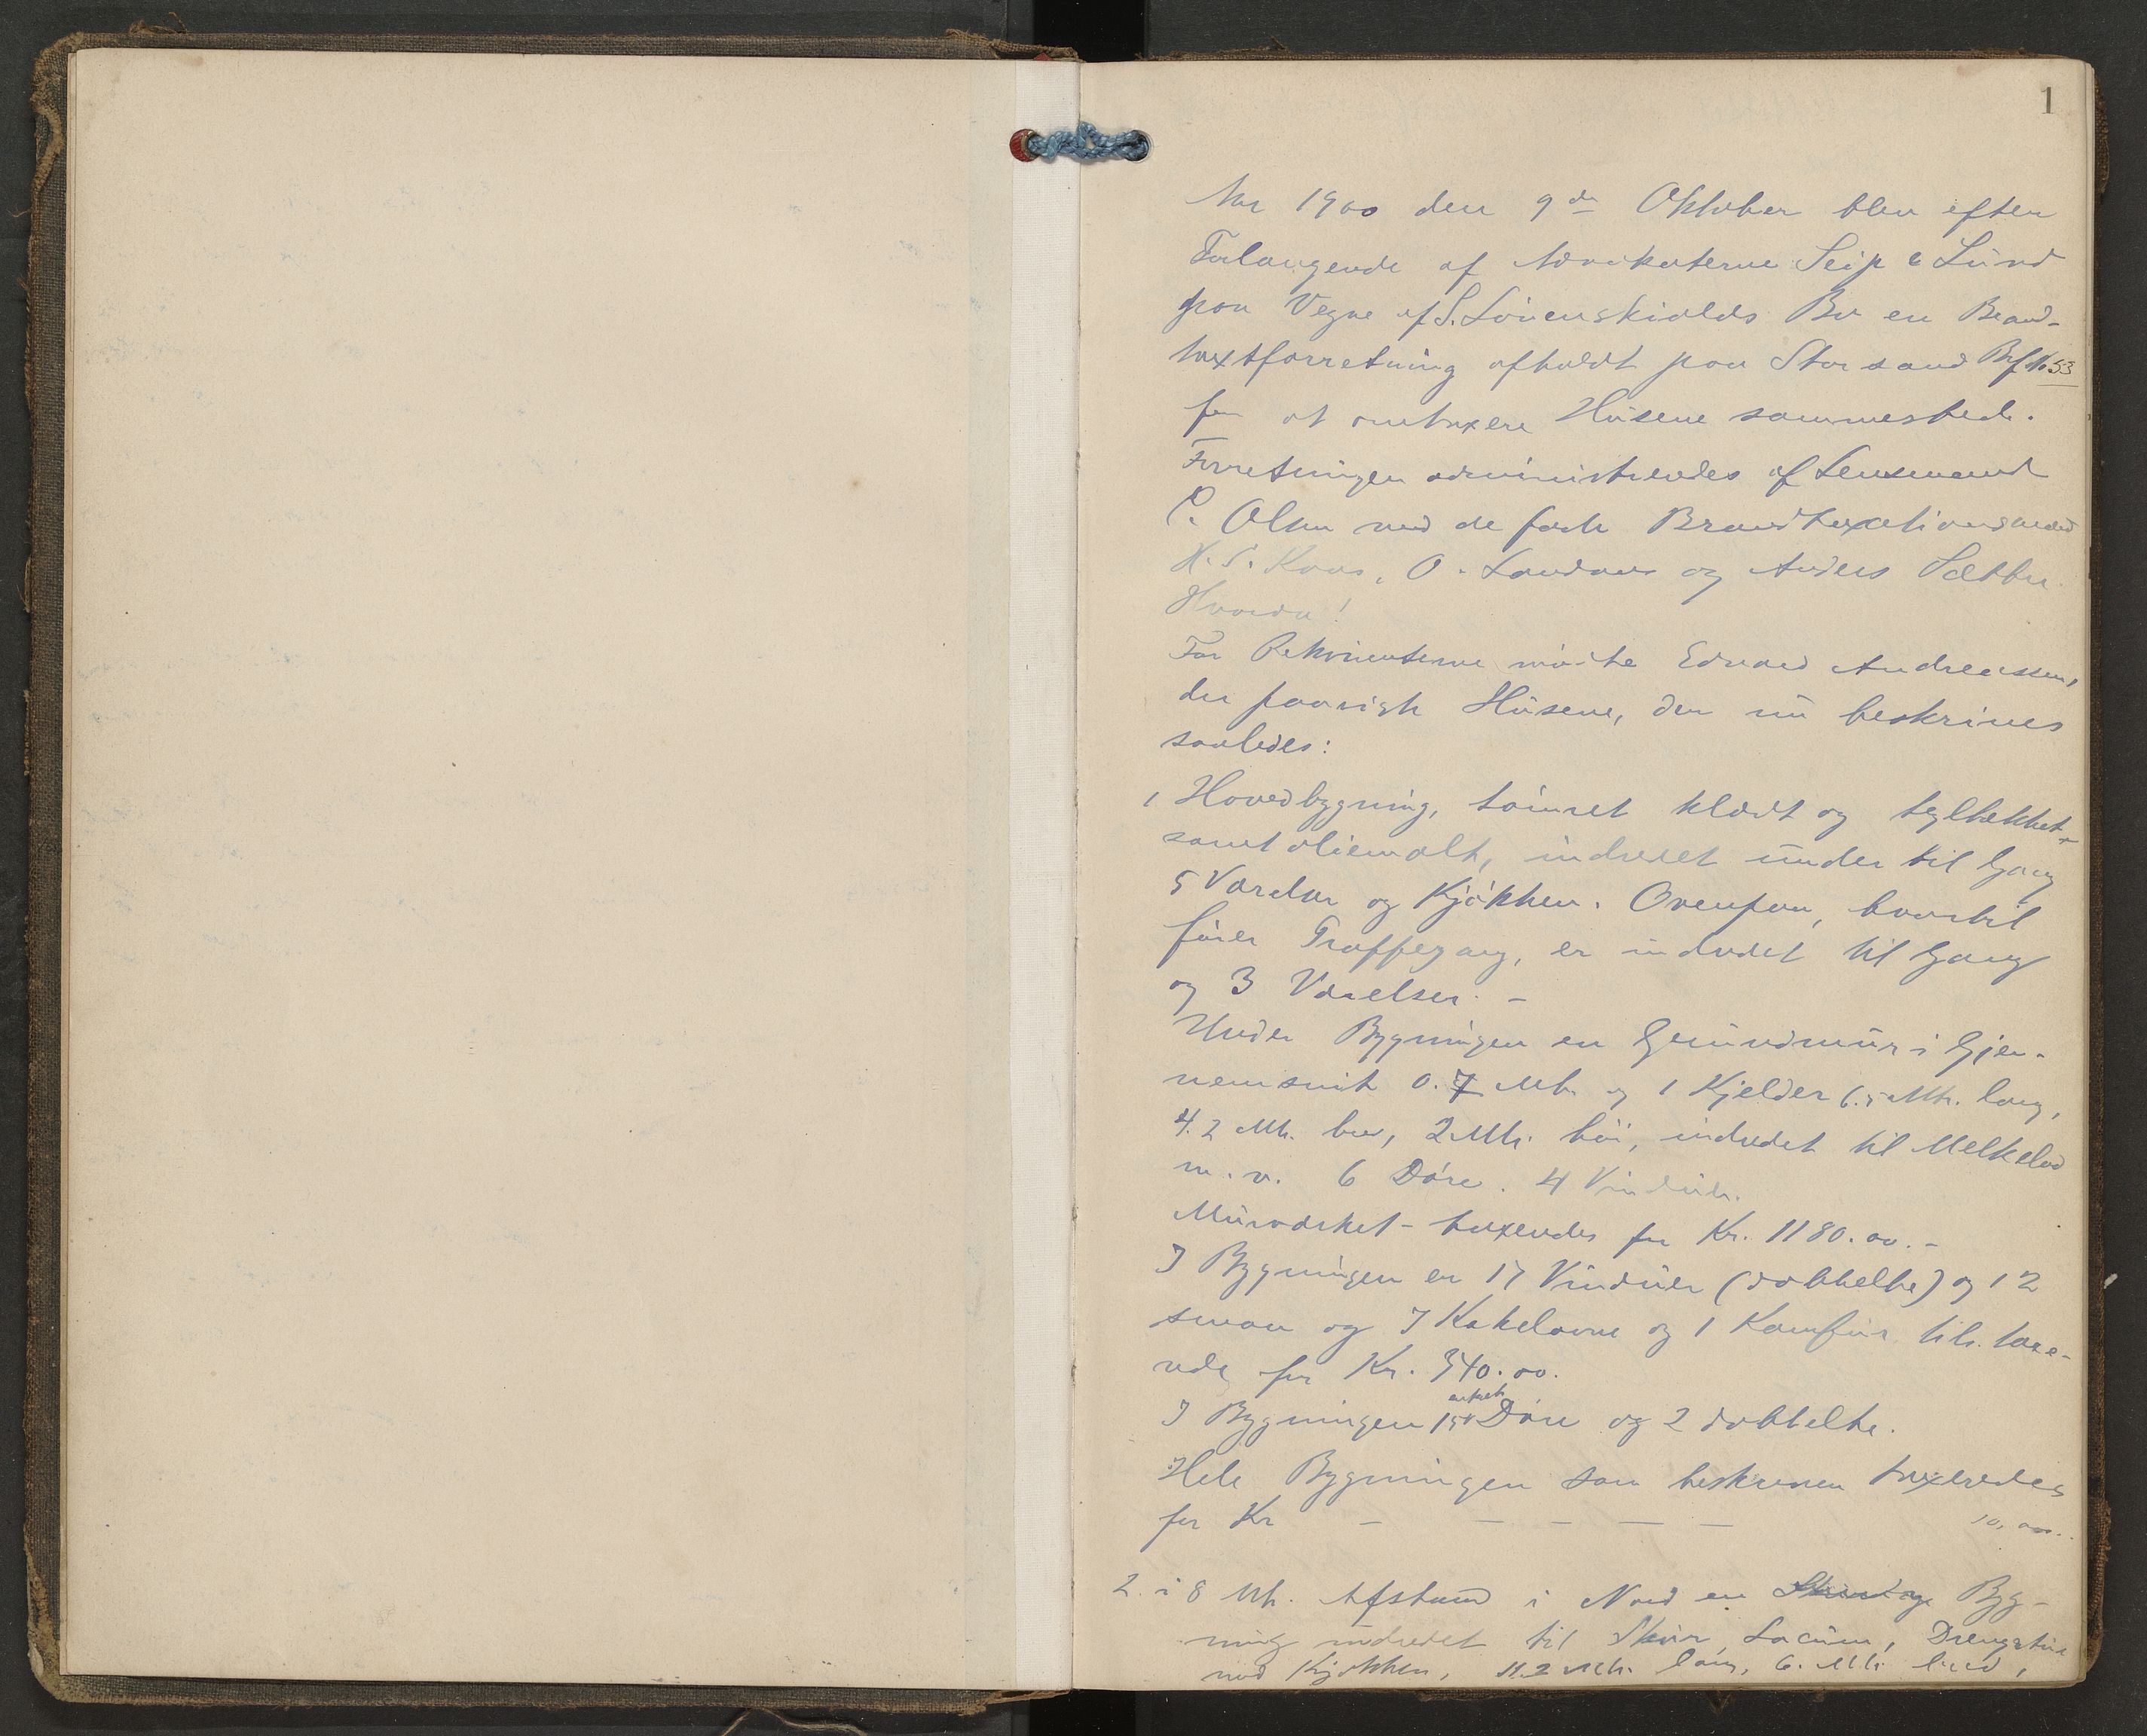 1
Aar 1900 den 9de Oktober blev efter
Forlangende af Advokaterne Seip & Lund
paa Vegne af S. Løvenskiolds Bo en Brand-
taxtforretning afholdt paa Storsand Bf No 53
for at omtaxere Husene sammesteds.
Forretningen administreredes af Lensmand
C. Olsen med de faste Brandtaxationsmænd
H. S. Kaas, O. Landaas og Anders Sætre
Hvorda!
For Rekvirenterne mødte Edvard Andreassen,
der paaviste Husene, der nu beskrives
saaledes:
1 Hovedbygning, tømret klædt og teglhekket
samt oliemalt, indredet under til Gang
5 Værelser og Kjøkken. Ovenpaa, hvortil
fører Trappegang, er indredet til Gang
og 3 Værelser. -
Under Bygningen en Grundmur i Gjen-
nemsnit 0.7 Mtr. og 1 Kjelder 6.5 Mtr. lang,
4.2 Mtr. bred, 2 Mtr. høi, indredet til Melkebod
m. v. 6 Døre. 4 Vinduer.
Murværket taxeredes for Kr. 1180.00.-
I Bygningen er 17 Vinduer (dobbelte) og 12
smaa og 7 Kakelovne og 1 Komfur tils. taxe-
redes for Kr. 340.00.
I Bygningen 15 enkelt Døre og 2 dobbelte.
Hele Bygningen som beskreven taxeredes
for Kr — — — — — 10,000.
2. i 8 Mtr. Afstand i Nord en Byg-
ning indredet til Skur, Locum, Drengstue
med Kjøkken, 11.2 Mtr. lang, 6. Mtr. bred,